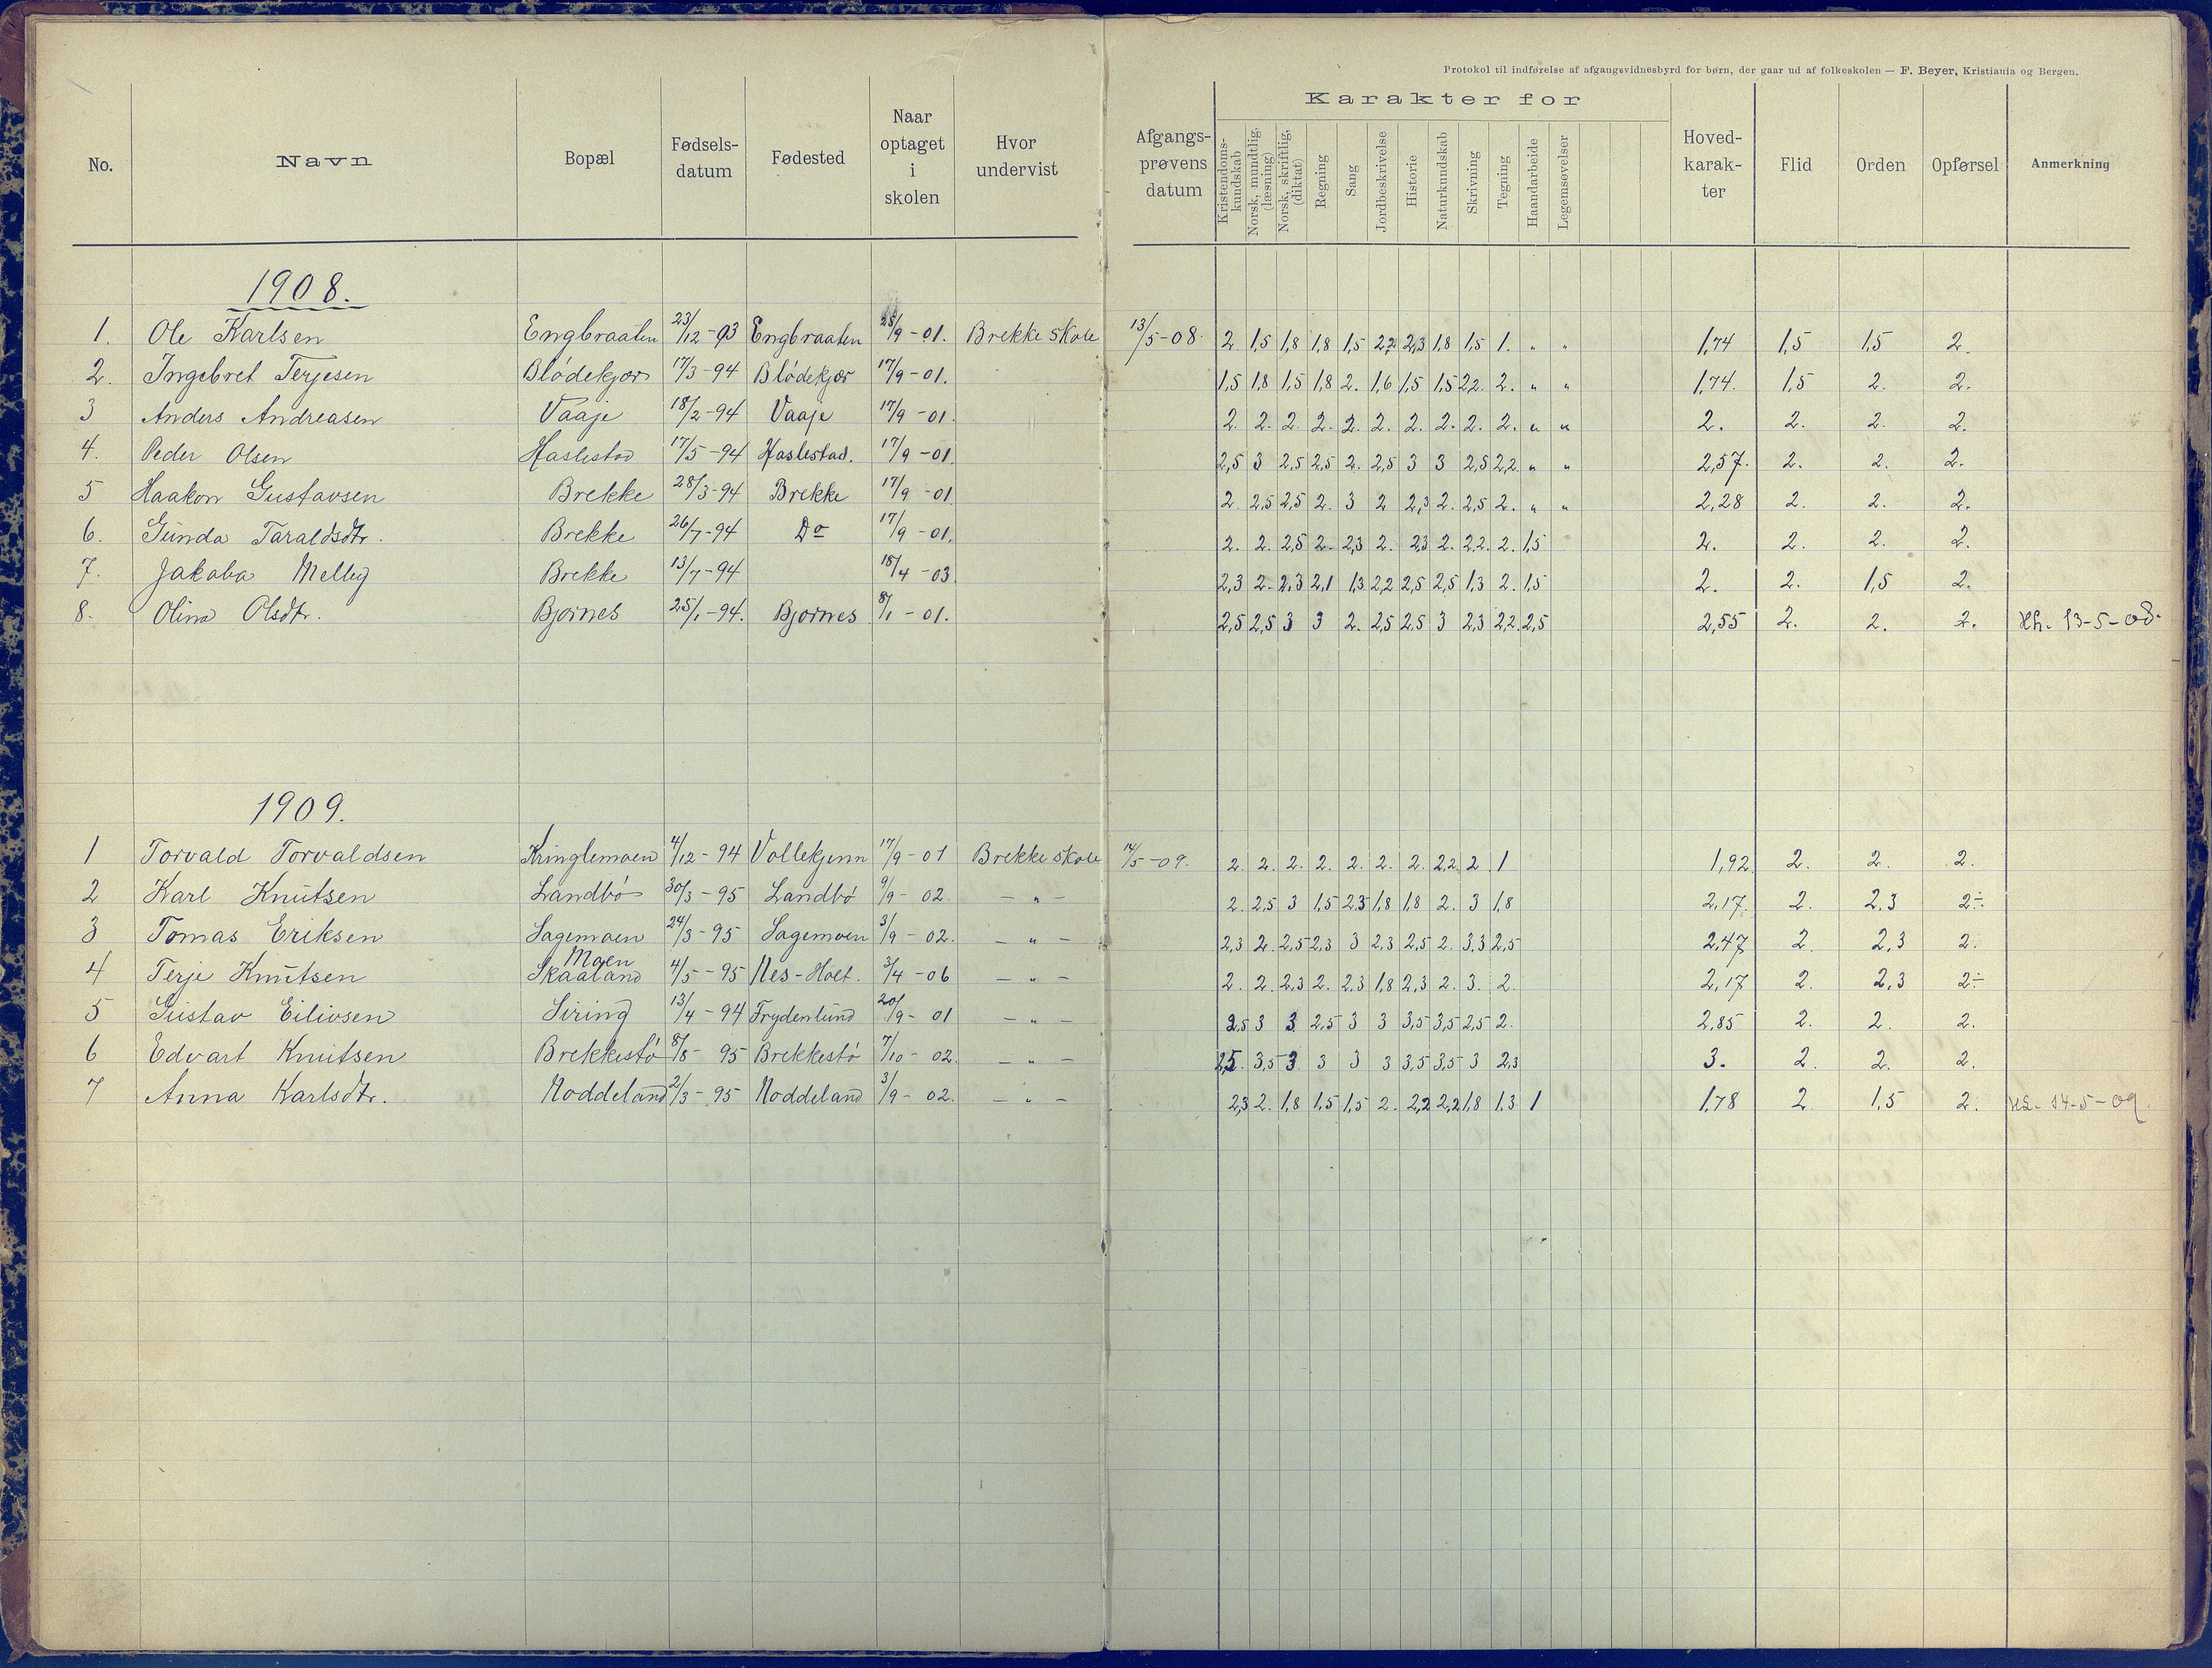 Protokol til indførelse af afgangsvidnesbyrd for børn, der gaar ud af folkeskolen — F. Beyer, Kristiania og Bergen.
No. Navn Bopæl Fødsels-datum Fødested Naar optaget i skolen Hvor undervist Afgangs-prøvens datum Karakter for Hoved-karak-ter Flid Orden Opførsel Anmerkning
Kristendoms-kundskab Norsk, mundtlig. (læsning) Norsk, skriftlig, (diktat) Regning Sang Jordbeskrivelse Historie Naturkundskab Skrivning Tegning Haandarbeide Legemsøvelser
1908.
1. Ole Karlsen Engbraaten 23/12-93 Engbraaten 25/9-01. Brekke skole 13/5-08. 2. 1,5 1,8 1,8 1,5 2,2 2,3 1,8 1,5 1. " " 1,74 1,5 1,5 2.
2. Ingebret Terjesen Blödekjær 17/3-94 Blödekjær 17/9-01. 1,5 1,8 1,5 1,8 2. 1,6 1,5 1,5 2,2. 2. " " 1,74. 1,5 2. 2.
3 Anders Andreasen Vaaje 18/2-94 Vaaje 17/9-01. 2. 2. 2. 2. 2. 2. 2. 2. 2. 2. " " 2. 2. 2. 2.
4. Peder Olsen Haslestad 17/5-94 Haslestad. 17/9-01. 2,5 3 2,5 2,5 2. 2,5 3 3 2,5 2,2. " " 2,57. 2. 2. 2.
5 Haakon Gustavsen Brekke 28/3-94 Brekke 17/9-01 2. 2,5 2,5 2. 3 2 2,3 2. 2,5 2. " " 2,28 2. 2. 2.
6. Gunda Taraldsdtr. Brekke 26/7-94 Do 17/9-01. 2. 2. 2,5 2. 2,3 2. 2,3 2. 2,2. 2. 1,5 2. 2. 2. 2.
7. Jakoba Melby Brekke 13/7-94 18/4-03. 2,3 2. 2,3 2,1 1,3 2,2 2,5 2,5 1,3 2. 1,5 2. 2. 1,5 2.
8. Olina Olsdtr. Bjornes 25/1-94. Bjornes 8/1-01. 2,5 2,5 3 3 2. 2,5 2,5 3 2,3 2,2. 2,5 2,55 2. 2. 2. 13-5-08.
1909.
1 Torvald Torvaldsen Kringlemoen 4/12-94 Vollekjenn 17/9-01 Brekke skole 14/5-09. 2. 2. 2. 2. 2. 2. 2. 2,2. 2 1 1,92 2. 2. 2.
2 Karl Knutsen Landbö 30/3-95 Landbö 9/9-02. — " — 2. 2,5 3 1,5 2,3 1,8 1,8 2. 3 1,8 2,17. 2. 2,3 2÷
3 Tomas Eriksen Lagemoen 24/3-95 Lagemoen 3/9-02. — " — 2,3 2. 2,5 2,3 3 2,3 2,5 2. 3,3 2,5 2,47 2. 2,3 2.
Moen
4 Terje Knutsen Skaaland 4/5-95 Nes-Holt. 3/4-06 — " — 2. 2. 2,3 2. 2,3 1,8 2,3 2. 3. 2. 2,17 2. 2,3 2÷
5 Gustav Eilivsen Liring 13/4-94 Frydenlund 20/9-01 — " — 2,5 3 3 2,5 3 3 3,5 3,5 2,5 2. 2,85 2. 2. 2.
6 Edvart Knutsen Brekkestö 8/8-95 Brekkestö 7/10-02. — " — 2,5. 3,5 3 3 3 3 3,5 3,5 3 2,3 3. 2. 2. 2.
7 Anna Karlsdtr. Noddeland 2/3-95 Noddeland 3/9-02. — " — 2,3 2. 1,8 1,5 1,5 2. 2,2 2,2 1,8 1,3 1 1,78 2 1,5 2. 14-5-09.